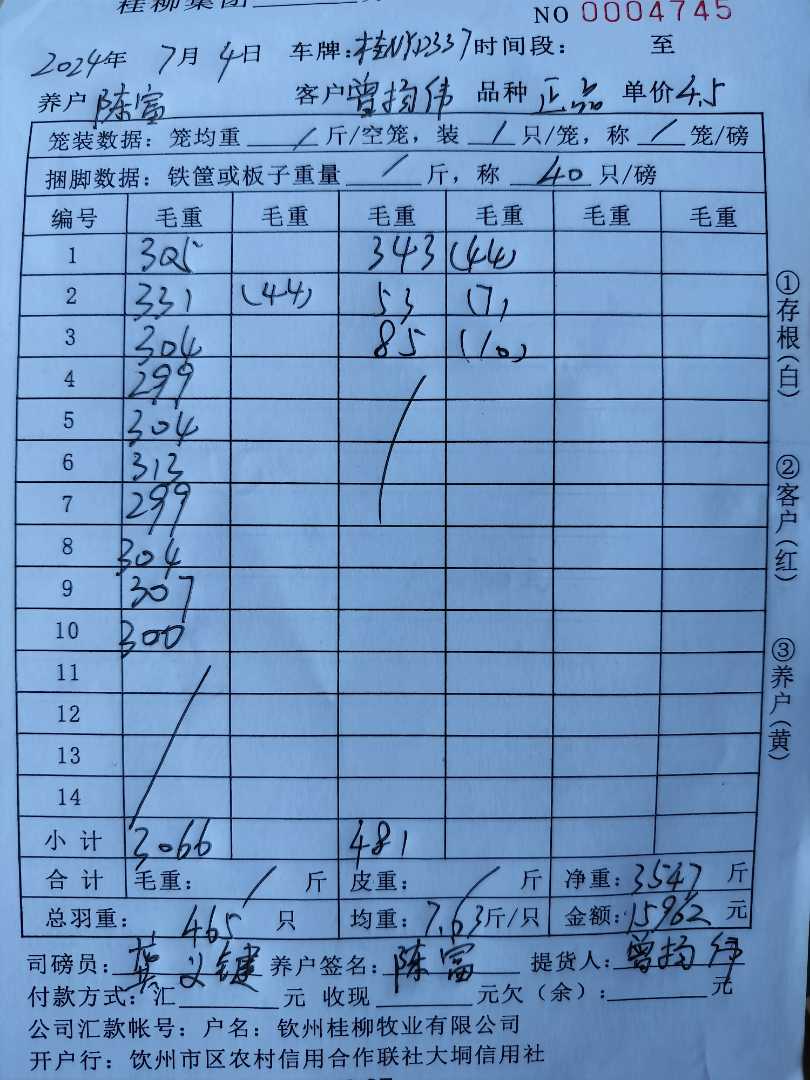 桂柳集团
NO 0004745
2024年 7月 4日 车牌:桂N12337 时间段: 至
养户 陈富 客户 曾扬伟 品种 正品 单价 4.5
笼装数据: 笼均重 / 斤/空笼, 装 / 只/笼, 称 / 笼/磅
捆脚数据: 铁筐或板子重量 / 斤, 称 40 只/磅
编号 毛重 毛重 毛重 毛重 毛重 毛重
1 305 343 (44)
2 331 (44) 53 (7)
3 304 85 (10)
4 299
5 304
6 313
7 299
8 304
9 307
10 300
11
12
13
14
小计 3066 481
合计 毛重: / 斤 皮重: / 斤 净重: 3547 斤
总羽重: 465 只 均重: 7.63 斤/只 金额: 15962 元
司磅员: 龚义键 养户签名: 陈富 提货人: 曾扬伟
付款方式: 汇 元 收现 元欠(余): 元
公司汇款帐号: 户名: 钦州桂柳牧业有限公司
开户行: 钦州市区农村信用合作联社大垌信用社
①存根(白)
②客户(红)
③养户(黄)